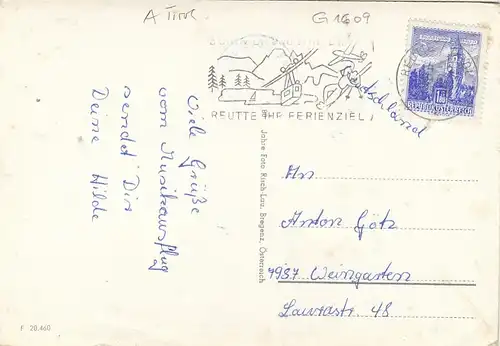 A Tirol
G 1609
REUTTE IHR FERIENZIEL
REPUBLIK ÖSTERREICH
Deutschland
Viele Grüße
vom Musikausflug
sendet Dir
Deine Hilde
Jahre Foto Risch-Lau, Bregenz, Österreich
An
Anton Götz
7987 Weingarten
Laurastr. 48
F 20.460